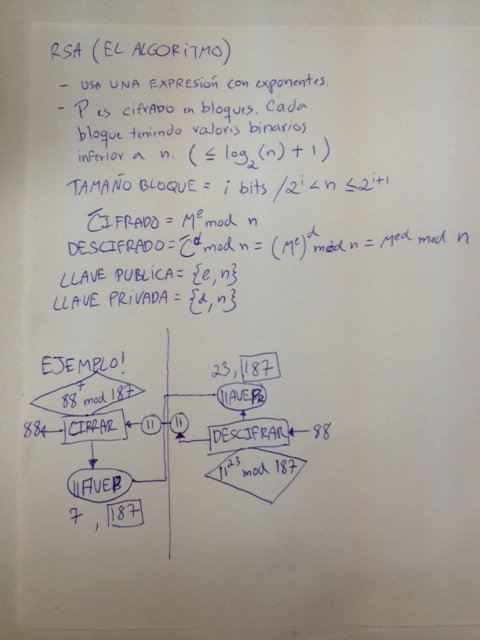 RSA (EL ALGORITMO)
- USA UNA EXPRESIÓN CON EXPONENTES.
- P es cifrado en bloques. Cada
bloque teniendo valores binarios
inferior a n. (≤ log₂(n) + 1)
TAMAÑO BLOQUE = i bits / 2^i < n ≤ 2^(i+1)
CIFRADO = M^e mod n
DESCIFRADO = C^d mod n = (M^e)^d mod n = M^ed mod n
LLAVE PUBLICA = {e, n}
LLAVE PRIVADA = {d, n}
EJEMPLO!
88^7 mod 187
88
CIFRAR
11
llAVEPB
7, 187
23, 187
llAVEPR
11
DESCIFRAR
88
11^23 mod 187